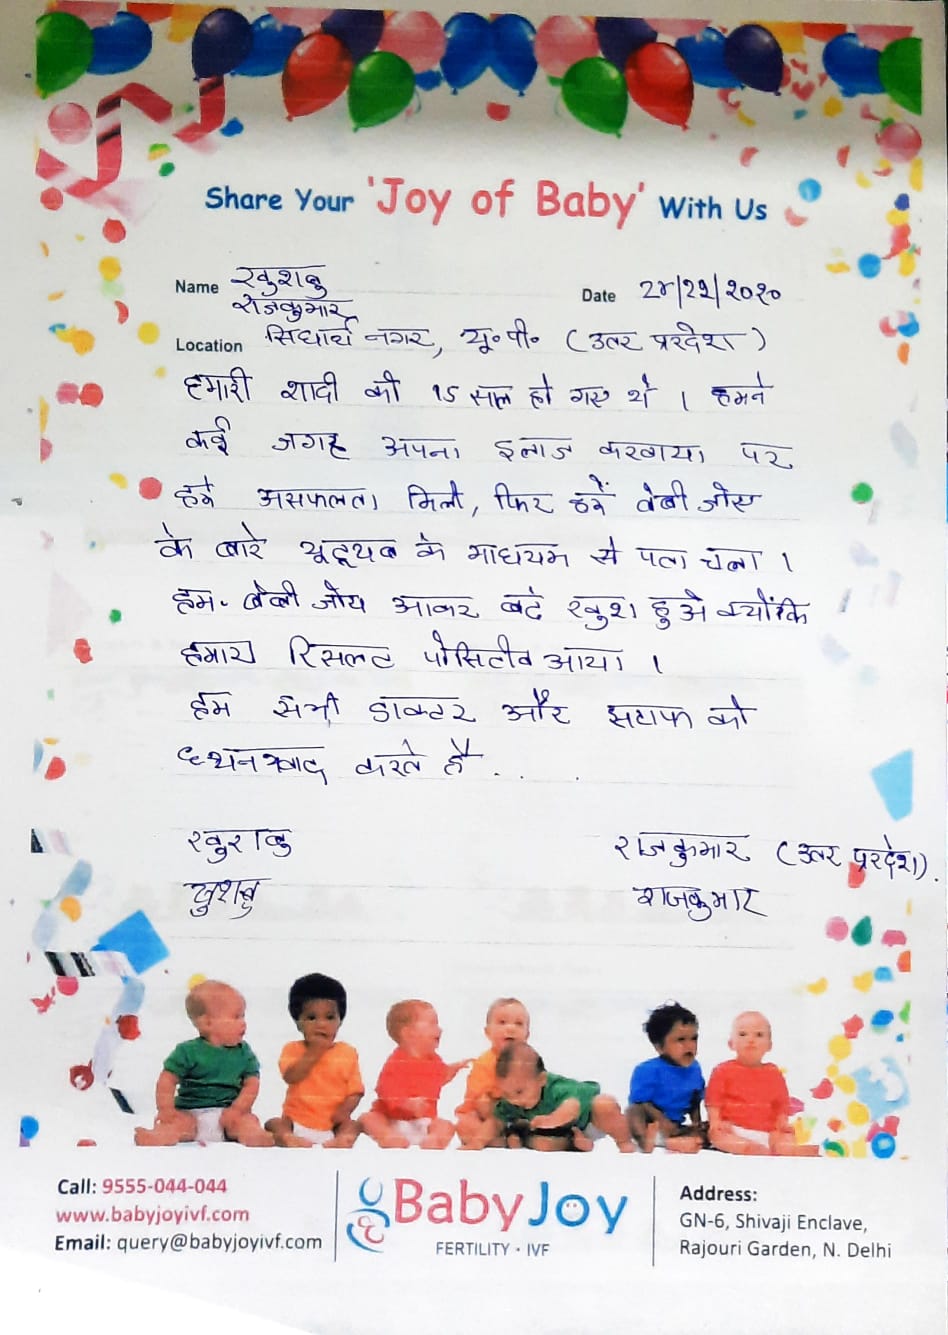 Share Your 'Joy of Baby' With Us
Name खुशबु
राजकुमार
Date 24/22/2020
Location सिधार्थ नगर, यू॰पी॰ (उतर प्ररदेश)
हमारी शादी को 15 साल हो गए थे । हमने
कई जगह अपना इलाज करवाया पर
हमे असफलता मिली, फिर हमें बेबी जोए
के बारे यूटूयब के माधयम से पता चला ।
हम. बेबी जोय आकर बढे खुश हुअे क्योंकि
हमारा रिसलट पोसिटीव आया ।
हम सभी डाक्टर और सटाफ को
धथनवाद करते है . . . .
खुशबु राजकुमार (उतर प्ररदेश).
खुशबु राजकुमार
Call: 9555-044-044
www.babyjoyivf.com
Email: query@babyjoyivf.com
BabyJoy
FERTILITY · IVF
Address:
GN-6, Shivaji Enclave,
Rajouri Garden, N. Delhi